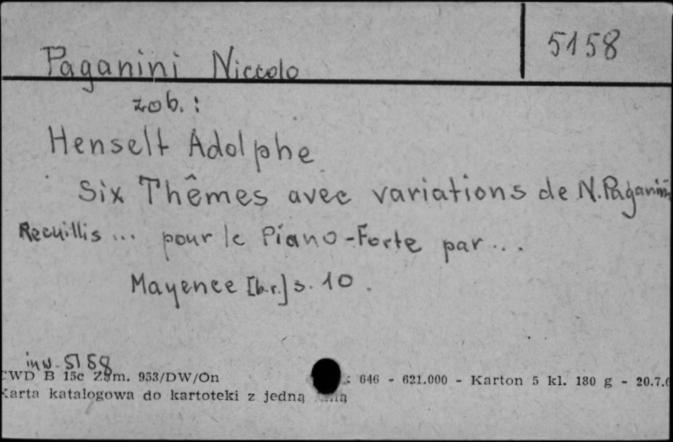 Paganini Niccolo
5158
zob.:
Henselt Adolphe
Six Thêmes avec variations de N. Paganini
Recuillis... pour le Piano-Forte par...
Mayence [b.r.] s. 10.
inw. 5158
CWD B 15c Zam. 953/DW/On : 646 - 621.000 - Karton 5 kl. 180 g - 20.7.6
Karta katalogowa do kartoteki z jedną